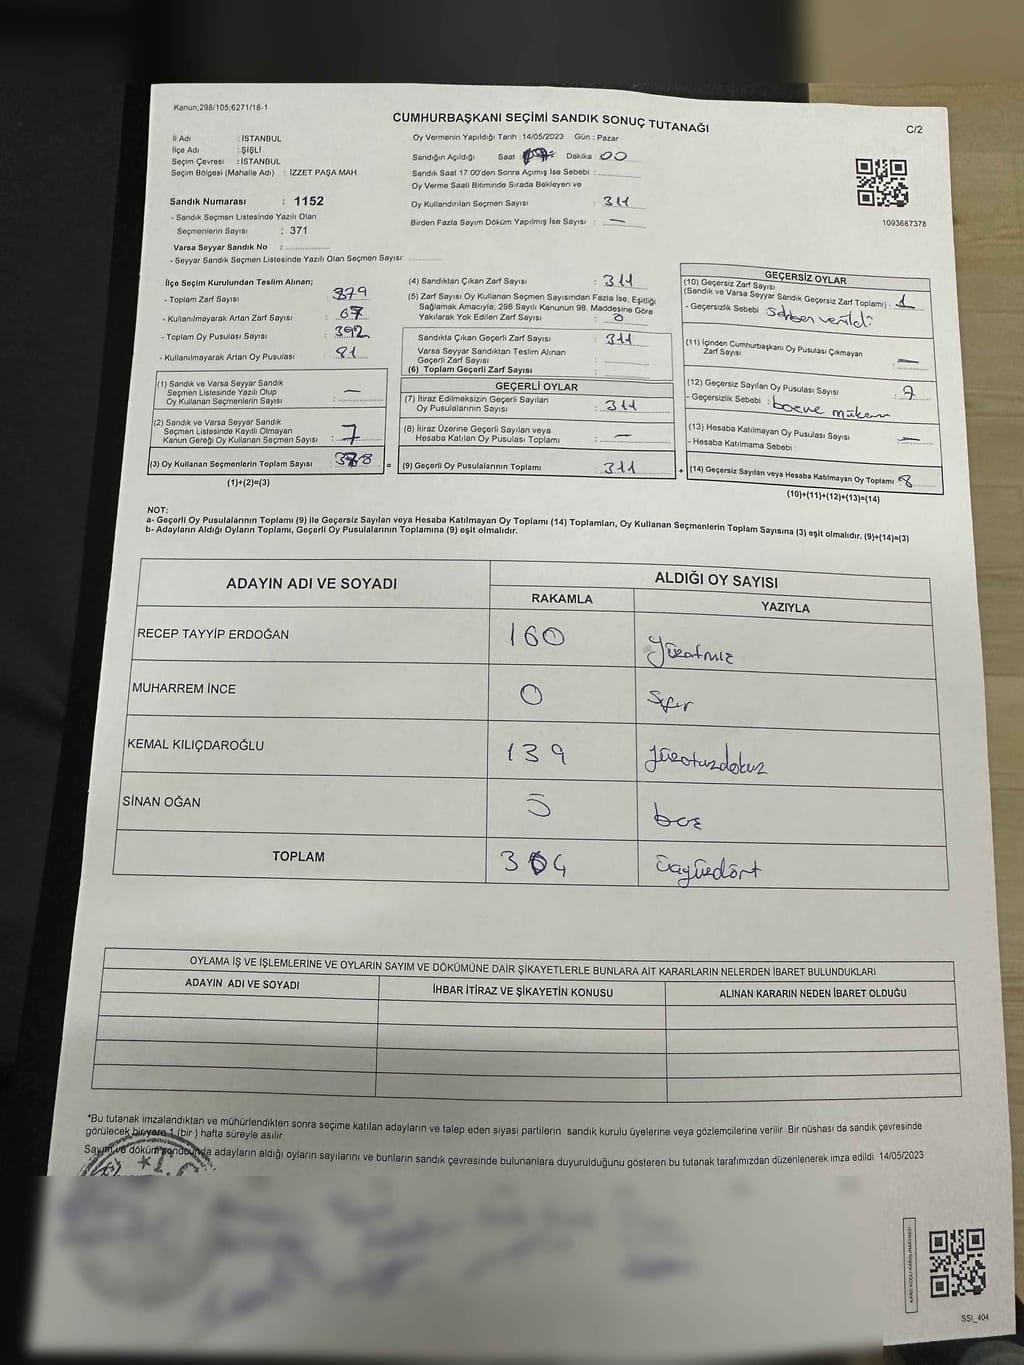 Kanun;298/105,6271/18-1
CUMHURBAŞKANI SEÇİMİ SANDIK SONUÇ TUTANAĞI
C/2
İl Adı : İSTANBUL
İlçe Adı : ŞİŞLİ
Seçim Çevresi : İSTANBUL
Seçim Bölgesi (Mahalle Adı) : İZZET PAŞA MAH
Sandık Numarası : 1152
- Sandık Seçmen Listesinde Yazılı Olan
Seçmenlerin Sayısı : 371
Varsa Seyyar Sandık No : ..................
- Seyyar Sandık Seçmen Listesinde Yazılı Olan Seçmen Sayısı: ............
Oy Vermenin Yapıldığı Tarih :14/05/2023 Gün : Pazar
Sandığın Açıldığı Saat Dakika 00
Sandık Saat 17:00'den Sonra Açmış İse Sebebi :
Oy Verme Saati Bitiminde Sırada Bekleyen ve
Oy Kullandırılan Seçmen Sayısı : 311
Birden Fazla Sayım Döküm Yapılmış İse Sayısı : —
1093687378
İlçe Seçim Kurulundan Teslim Alınan;
- Toplam Zarf Sayısı : 379
- Kullanılmayarak Artan Zarf Sayısı : 67
- Toplam Oy Pusulası : 392
- Kullanılmayarak Artan Oy Pusulası : 81
(1) Sandık ve Varsa Seyyar Sandık
Seçmen Listesinde Yazılı Olup
Oy Kullanan Seçmenlerin Sayısı : —
(2) Sandık ve Varsa Seyyar Sandık
Seçmen Listesinde Kayıtlı Olmayan
Kanun Gereği Oy Kullanan Seçmen Sayısı : 7
(3) Oy Kullanan Seçmenlerin Toplam Sayısı : 378 =
(1)+(2)=(3)
(4) Sandıktan Çıkan Zarf Sayısı : 311
(5) Zarf Sayısı Oy Kullanan Seçmen Sayısından Fazla İse, Eşitliği
Sağlamak Amacıyla, 298 Sayılı Kanunun 98. Maddesine Göre
Yakılarak Yok Edilen Zarf Sayısı : 0
Sandıkta Çıkan Geçerli Zarf Sayısı : 311
Varsa Seyyar Sandıktan Teslim Alınan
Geçerli Zarf Sayısı :
(6) Toplam Geçerli Zarf Sayısı :
GEÇERLİ OYLAR
(7) İtiraz Edilmeksizin Geçerli Sayılan
Oy Pusulalarının Sayısı : 311
(8) İtiraz Üzerine Geçerli Sayılan veya
Hesaba Katılan Oy Pusulası Toplamı : —
(9) Geçerli Oy Pusulalarının Toplamı : 311 +
GEÇERSİZ OYLAR
(10) Geçersiz Zarf Sayısı
(Sandık ve Varsa Seyyar Sandık Geçersiz Zarf Toplamı) : 1
- Geçersizlik Sebebi : verildi
(11) İçinden Cumhurbaşkanı Oy Pusulası Çıkmayan
Zarf Sayısı : —
(12) Geçersiz Sayılan Oy Pusulası Sayısı : 7
- Geçersizlik Sebebi :
(13) Hesaba Katılmayan Oy Pusulası Sayısı : —
- Hesaba Katılmama Sebebi :
(14) Geçersiz Sayılan veya Hesaba Katılmayan Oy Toplamı : 8
(10)+(11)+(12)+(13)=(14)
NOT:
a- Geçerli Oy Pusulalarının Toplamı (9) ile Geçersiz Sayılan veya Hesaba Katılmayan Oy Toplamı (14) Toplamları, Oy Kullanan Seçmenlerin Toplam Sayısına (3) eşit olmalıdır. (9)+(14)=(3)
b- Adayların Aldığı Oyların Toplamı, Geçerli Oy Pusulalarının Toplamına (9) eşit olmalıdır.
ADAYIN ADI VE SOYADI ALDIĞI OY SAYISI
RAKAMLA YAZIYLA
RECEP TAYYİP ERDOĞAN 160 yüzatmış
MUHARREM İNCE 0 sıfır
KEMAL KILIÇDAROĞLU 139 yüzotuzdokuz
SİNAN OĞAN 5 beş
TOPLAM 304 üçyüzdört
OYLAMA İŞ VE İŞLEMLERİNE VE OYLARIN SAYIM VE DÖKÜMÜNE DAİR ŞİKAYETLERLE BUNLARA AİT KARARLARIN NELERDEN İBARET BULUNDUKLARI
ADAYIN ADI VE SOYADI İHBAR İTİRAZ VE ŞİKAYETİN KONUSU ALINAN KARARIN NEDEN İBARET OLDUĞU
*Bu tutanak imzalandıktan ve mühürlendikten sonra seçime katılan adayların ve talep eden siyasi partilerin sandık kurulu üyelerine veya gözlemcilerine verilir. Bir nüshası da sandık çevresinde
görülecek bir yere 1 (bir ) hafta süreyle asılır.
Sayım ve döküm sonucunda adayların aldığı oyların sayılarını ve bunların sandık çevresinde bulunanlara duyurulduğunu gösteren bu tutanak tarafımızdan düzenlenerek imza edildi. 14/05/2023
T.C.
SSI_404